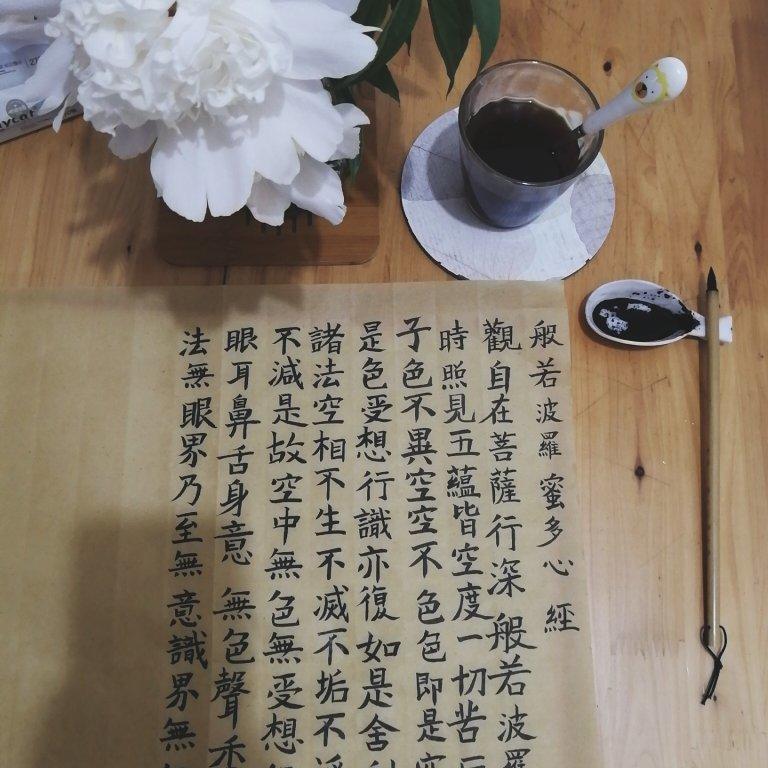 般若波羅蜜多心經
觀自在菩薩行深般若波羅
時照見五蘊皆空度一切苦
子色不異空空不色色即是空
是色受想行識亦復如是舍利
諸法空相不生不滅不垢不淨
不減是故空中無色無受想
眼耳鼻舌身意無色聲香
法無眼界乃至無意識界無